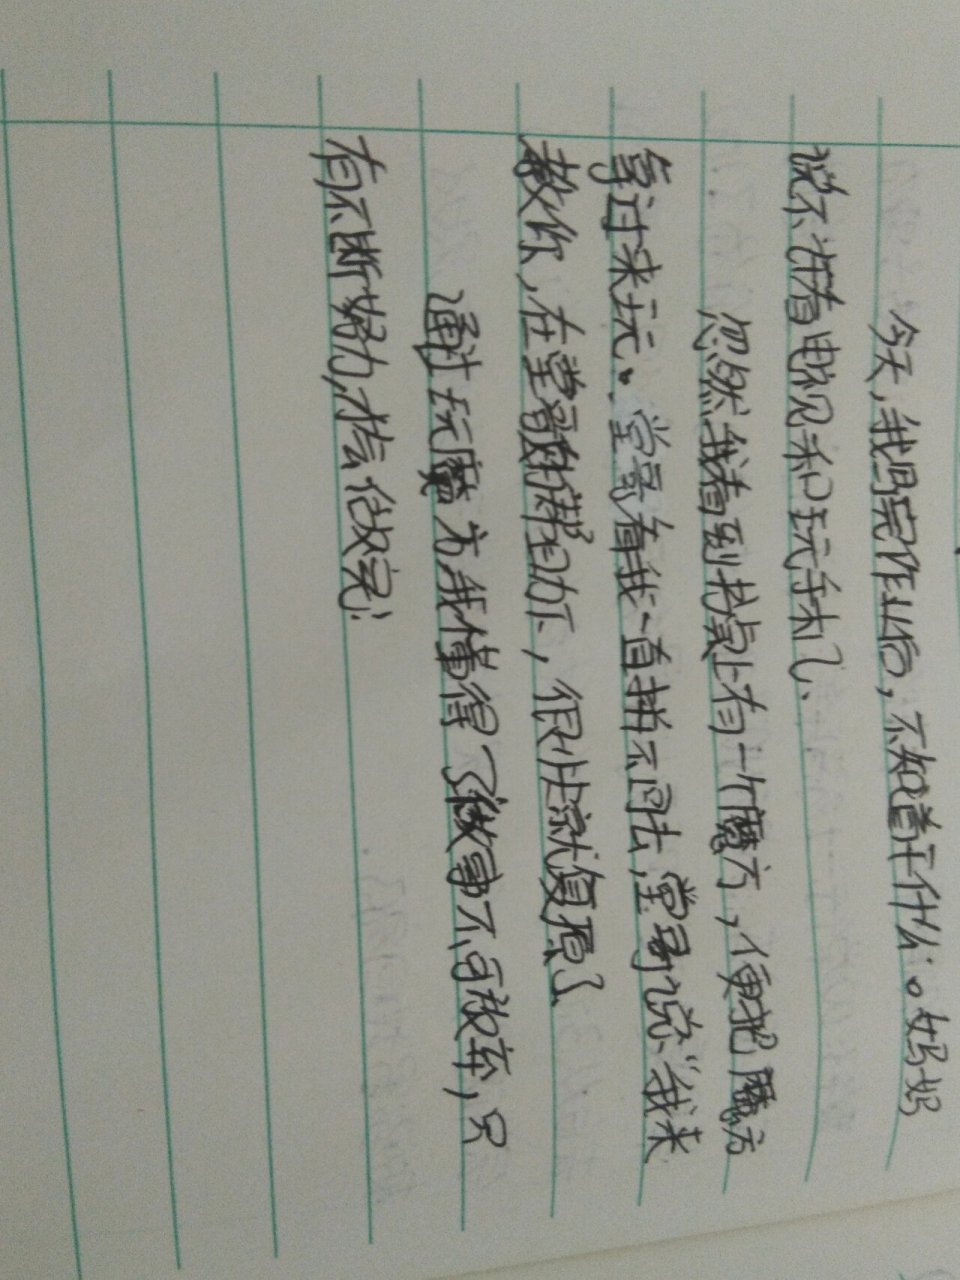 今天,我写完作业后,不知道干什么。妈妈
说不准看电视和玩手机、
忽然我看到书桌上有一个魔方,便把魔方
拿过来玩。堂哥看我一直拼不回去,堂哥说“我来
教你,在堂哥的帮助下,很快就复原了
通过玩魔方我懂得了做事不可放弃,只
有不断努力,才会做完!